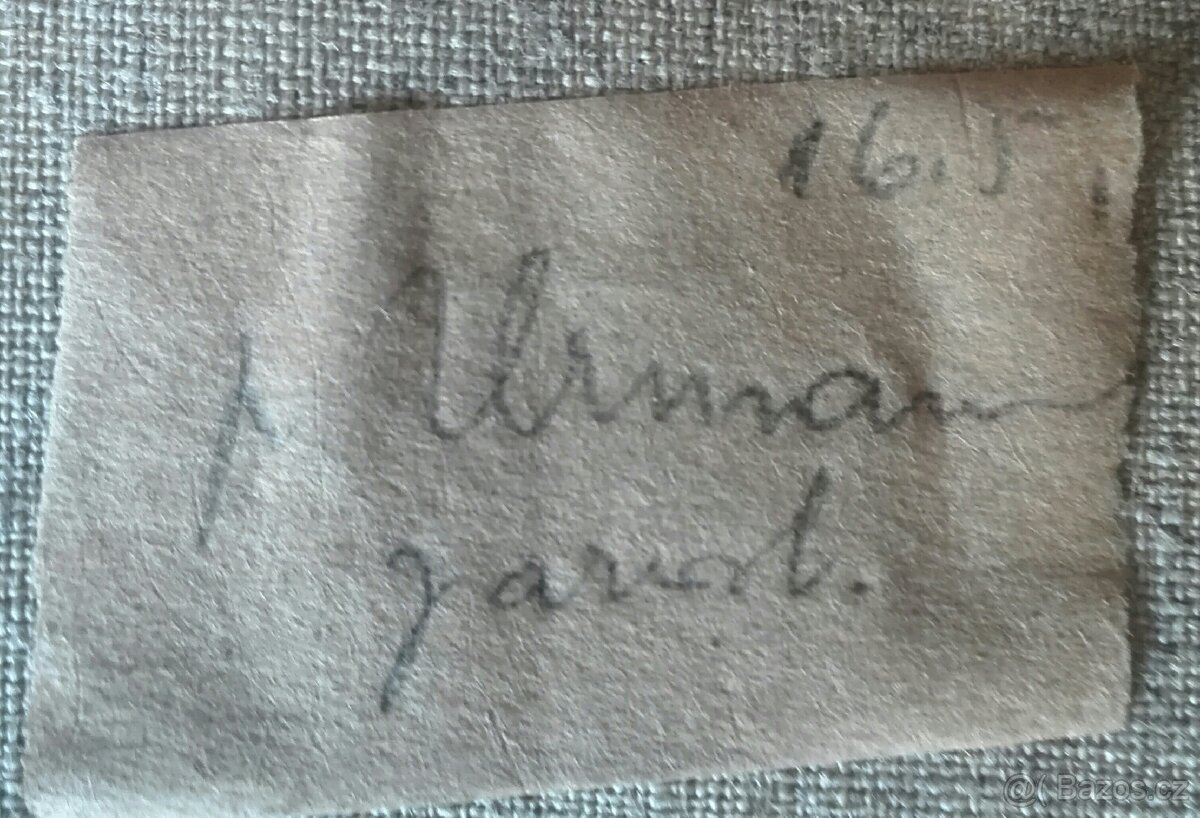 16.5.
p Urman
zarob.
@( Bazos.cz